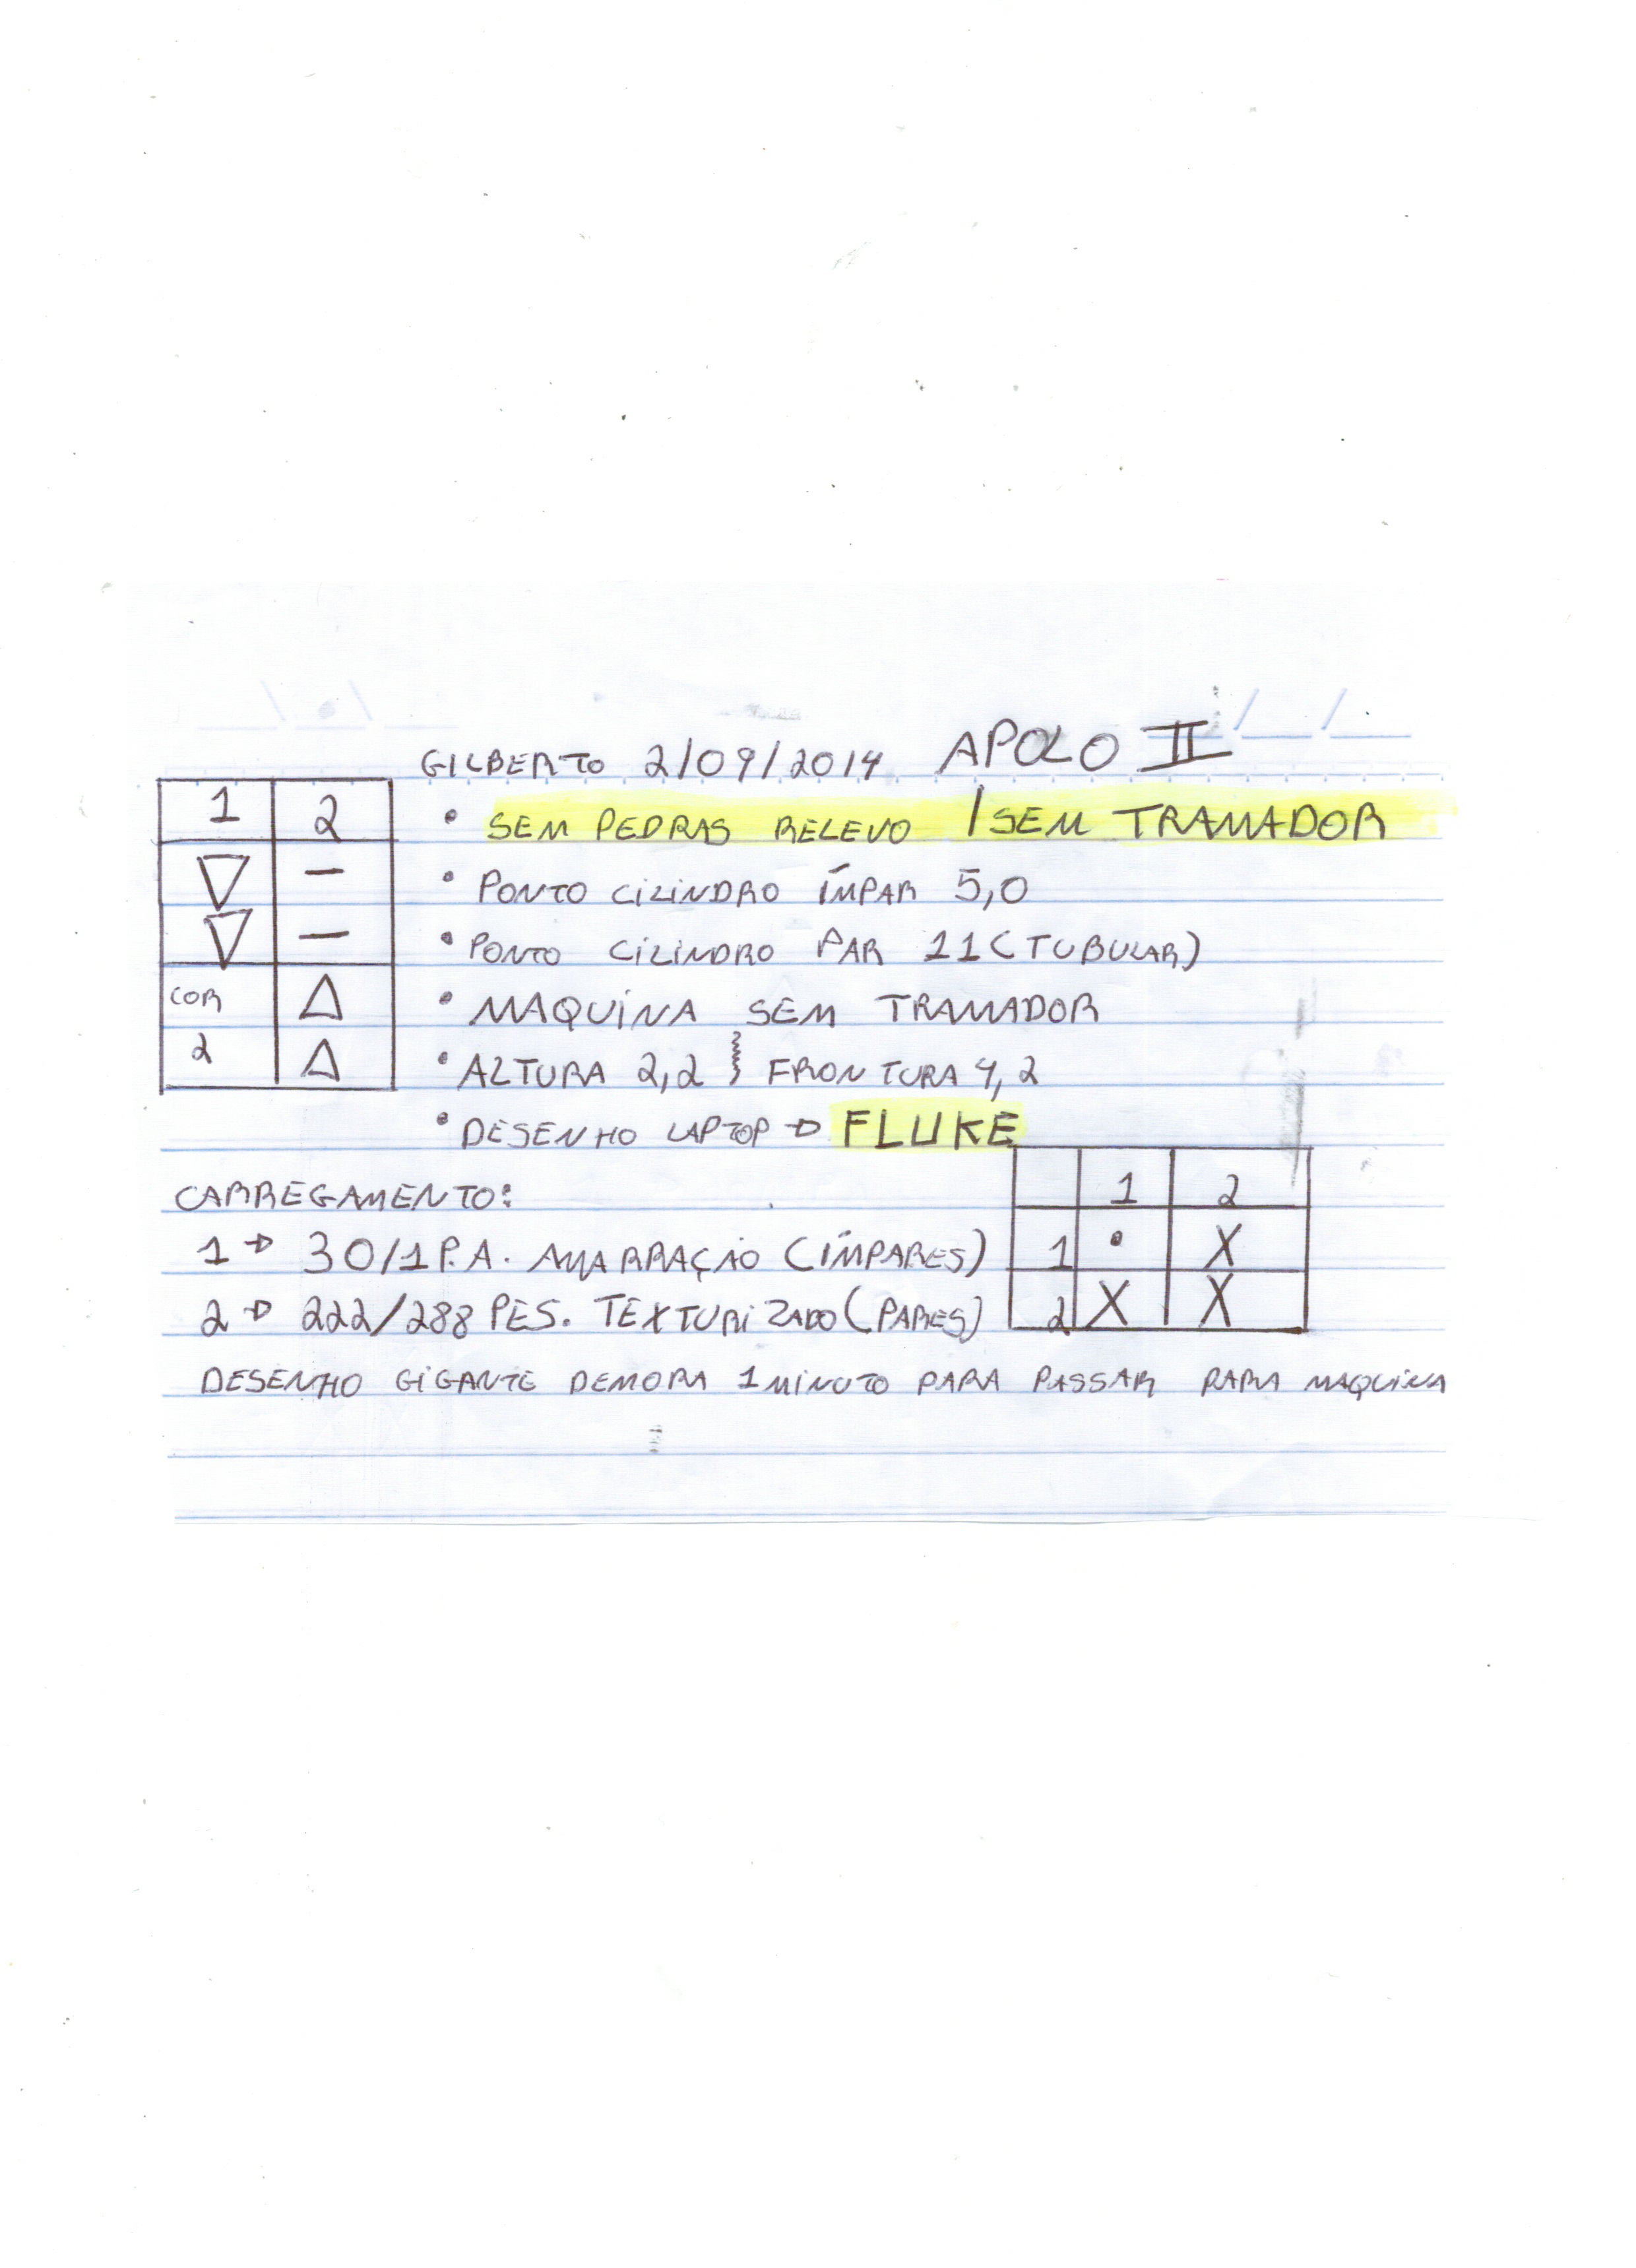 GILBERTO 2/09/2014 APOLO II
1 2
• SEM PEDRAS RELEVO / SEM TRAMADOR
▽ —
• PONTO CILINDRO ÍMPAR 5,0
▽ —
• PONTO CILINDRO PAR 11 (TUBULAR)
COR △
• MAQUINA SEM TRAMADOR
2 △
• ALTURA 2,2 } FRONTURA 4,2
• DESENHO LAPTOP → FLUKE
CARREGAMENTO:
1 → 30/1 P.A. AMARRAÇÃO (ÍMPARES)
2 → 222/288 PES. TEXTURIZADO (PARES)
1 2
1 • X
2 X X
DESENHO GIGANTE DEMORA 1 MINUTO PARA PASSAR PARA MAQUINA